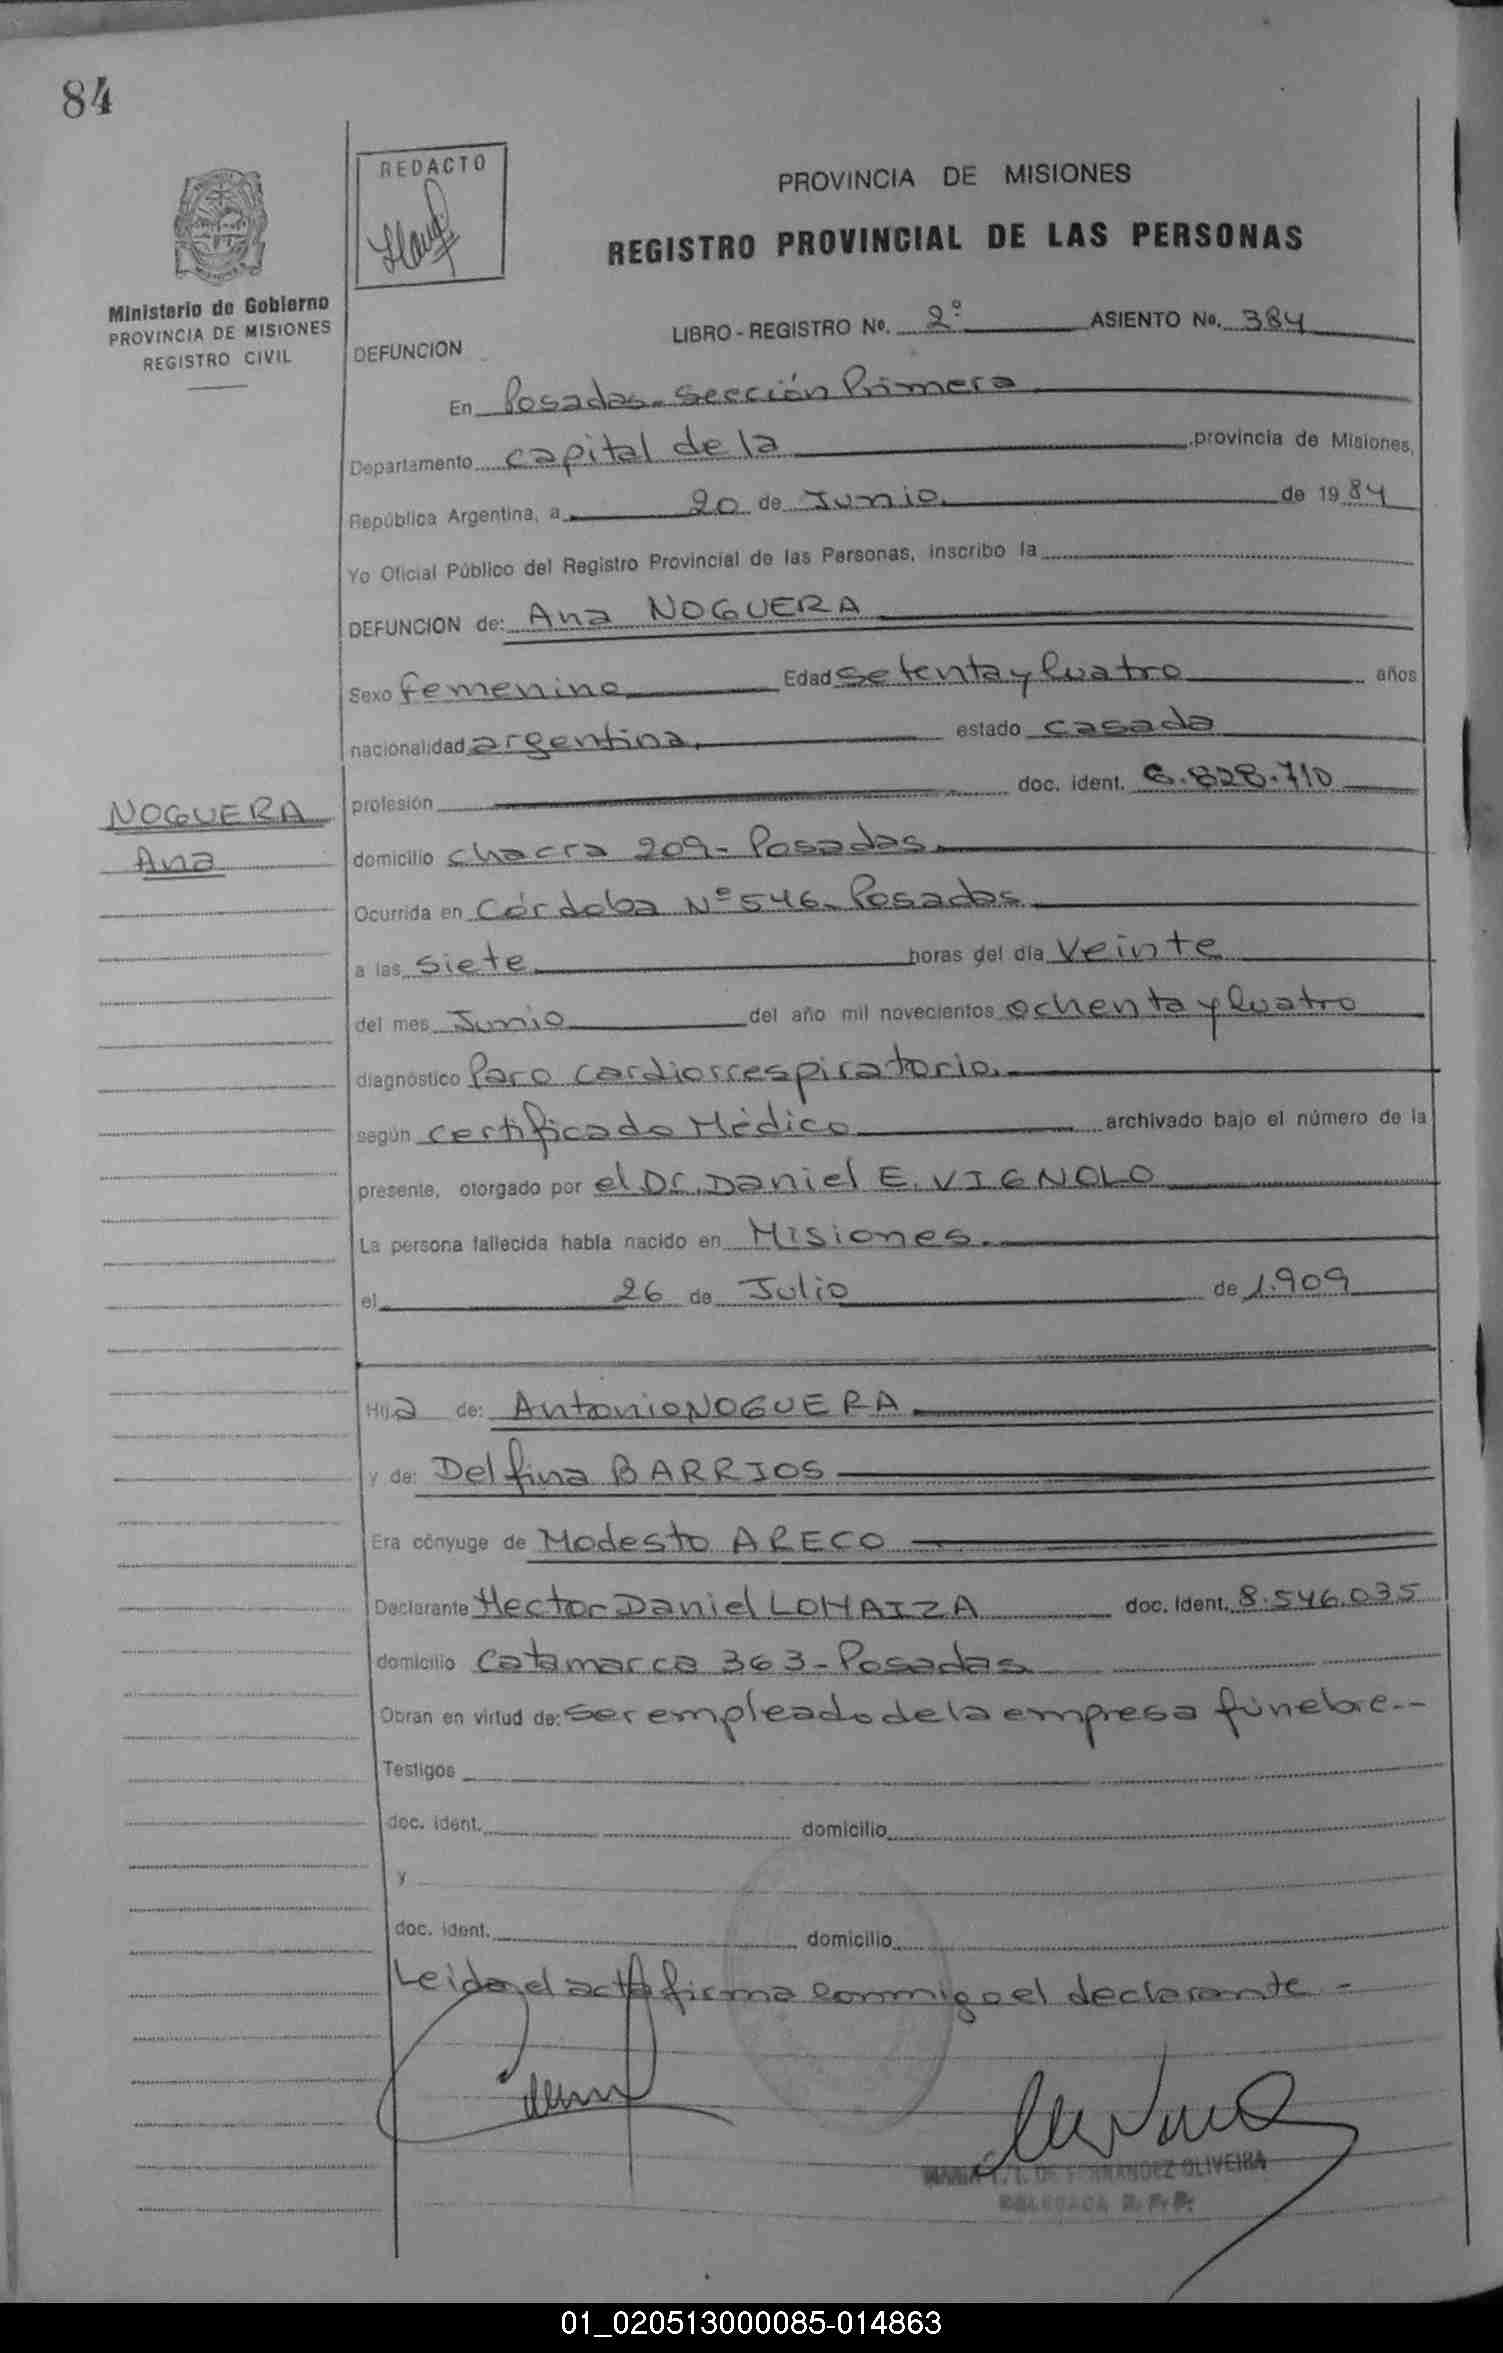 84
REDACTO
PROVINCIA DE MISIONES
REGISTRO PROVINCIAL DE LAS PERSONAS
Ministerio de Gobierno
PROVINCIA DE MISIONES
REGISTRO CIVIL
LIBRO - REGISTRO No. 2º ASIENTO No. 384
DEFUNCION
En Posadas - Sección Primera
Departamento Capital de la provincia de Misiones,
República Argentina, a 20 de Junio de 1984
Yo Oficial Público del Registro Provincial de las Personas, inscribo la
DEFUNCION de: Ana NOGUERA
Sexo femenino Edad Setenta y Cuatro años
nacionalidad argentina. estado casada
profesión doc. ident. 6.828.710
NOGUERA
Ana
domicilio chacra 209 - Posadas.
Ocurrida en Córdoba Nº 546 - Posadas
a las siete horas del día Veinte
del mes Junio del año mil novecientos ochenta y Cuatro
diagnóstico Paro cardiorrespiratorio.
según certificado Médico archivado bajo el número de la
presente, otorgado por el Dr. Daniel E. VIGNOLO
La persona fallecida había nacido en Misiones.
el 26 de Julio de 1.909
Hija de: Antonio NOGUERA
y de: Delfina BARRIOS
Era cónyuge de Modesto ARECO
Declarante Hector Daniel LOHAIZA doc. ident. 8.546.035
domicilio Catamarca 363 - Posadas
Obran en virtud de: ser empleado de la empresa fúnebre.--
Testigos
doc. ident. domicilio
y
doc. ident. domicilio
Leida el acta firma conmigo el declarante -
DE FERNANDEZ OLIVEIRA
DELEGADA R. P. P.
01_020513000085-014863